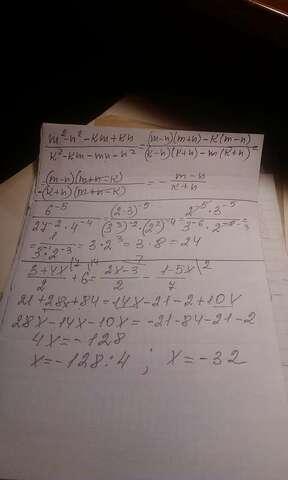 m²-n²-km+kn / k²-km-mn-n² = (m-n)(m+n)-k(m-n) / (k-n)(k+n)-m(k+n) =
-(m-n)(m+n-k) / -(k+n)(m+n-k) = - m-n / k+n
6⁻⁵ / 27⁻²·4⁻⁴ = (2·3)⁻⁵ / (3³)⁻²·(2²)⁻⁴ = 2⁻⁵·3⁻⁵ / 3⁻⁶·2⁻⁸
= 1 / 3⁻¹·2⁻³ = 3·2³=3·8=24
3+4x / 2 + 6 = 2x-3 / 2 - 1-5x / 7
21+28x+84=14x-21-2+10x
28x-14x-10x=-21-84-21-2
4x=-128
x=-128:4 ; x=-32